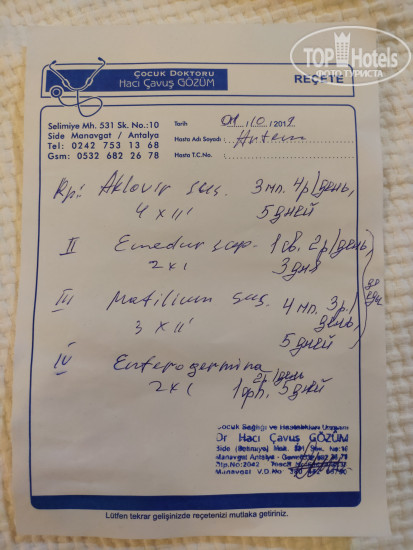 TOP Hotels
ФОТО ТУРИСТА
ÇOCUK DOKTORU
Hacı Çavuş GÖZÜM
REÇETE
Selimiye Mh. 531 Sk. No.:10
Side Manavgat / Antalya
Tel: 0242 753 13 68
Gsm: 0532 682 26 78
Tarih 01/10/2019
Hasta Adı Soyadı: Artem
Hasta T.C.No.:
Rp: Aklovir sus. 3 мл. 4р/день,
4 x II 5 дней
II Emedur sup. 1 св. 2р/день,
2 x 1 3 дня
III Motilium sus. 4 мл. 3р./день,
3 x II 5 дней
до еды
IV Enterogermina 2р/день
2 x 1 1 фл. 5 дней
Çocuk Sağlığı ve Hastalıkları Uzmanı
Dr Hacı Çavuş GÖZÜM
Manavgat Antalya
Dip.No:2042
Manavgat V.D.No
Lütfen tekrar gelişinizde reçetenizi mutlaka getiriniz.